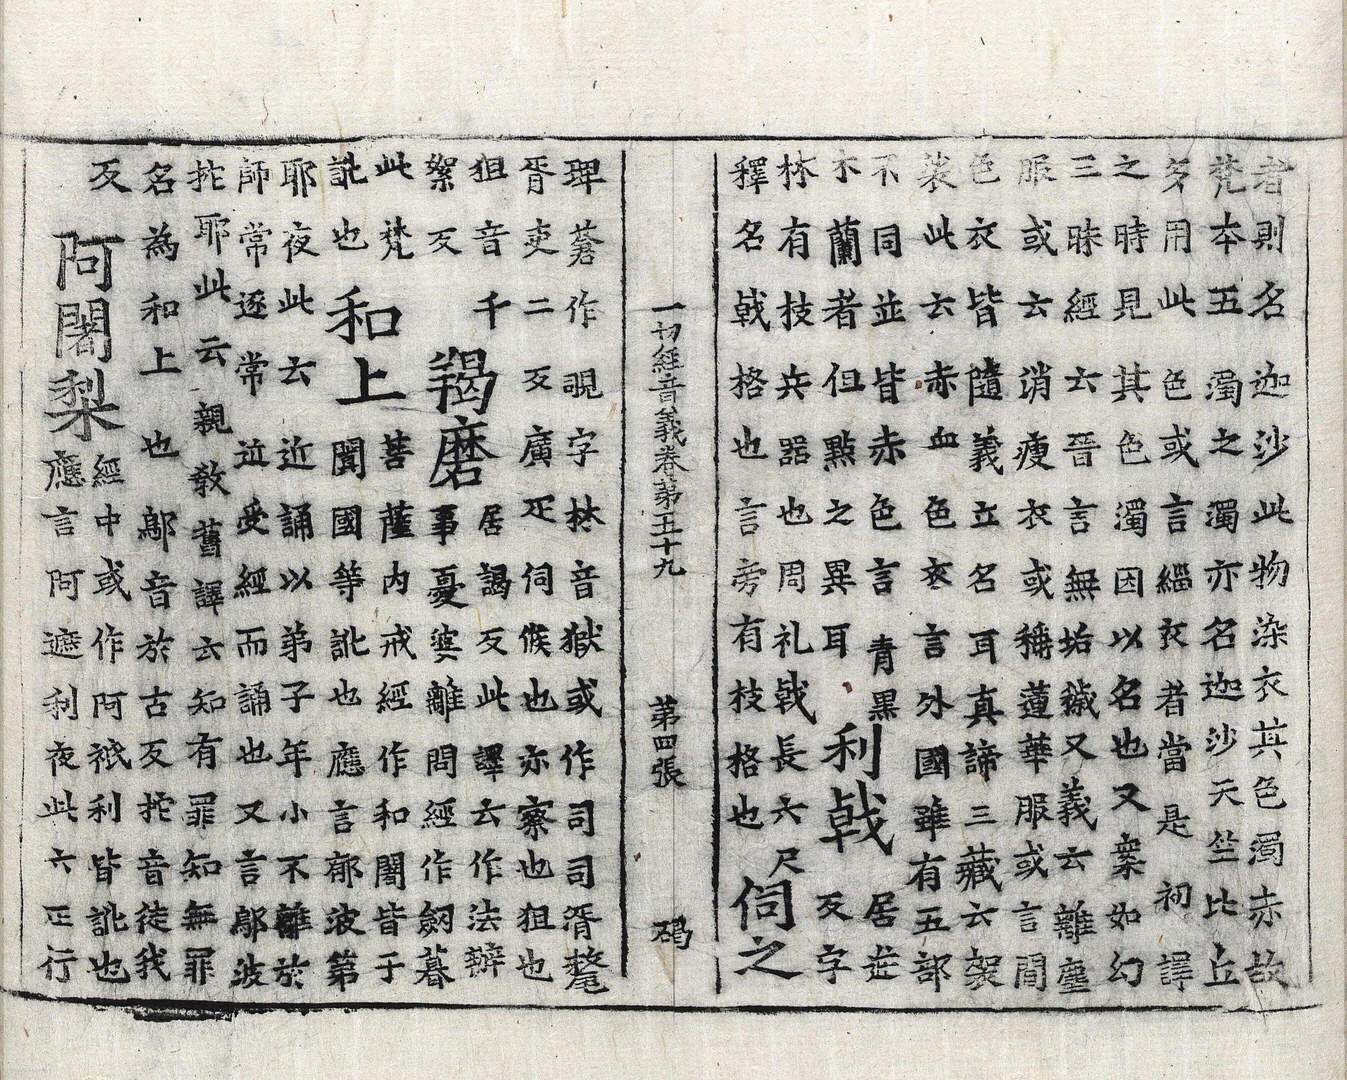 者則名迦沙此物染衣其色濁赤故
梵本五濁之濁亦名迦沙天竺比丘
多用此色或言緇衣者當是初譯
之時見其色濁因以名也又案如幻
三昧經云晉言無垢穢又義云離塵
服或云消瘦衣或稱蓮華服或言間
色衣皆隨義立名耳真諦三藏云袈
裟此云赤血色衣言外國雖有五部
不同並皆赤色言青黑
木蘭者但點之異耳
利戟
居逆
反字
林有枝兵器也周礼戟長六尺
釋名戟格也言旁有枝格也
伺之
一切經音義卷第五十九 第四張 碣
埤蒼作覗字林音獄或作司司胥氂
胥吏二反廣疋伺候也亦察也狙也
狙音千
絮反
羯磨
居謁反此譯云作法辦
事憂婆離問經作劒暮
此梵
訛也
和上
菩薩內戒經作和闍皆于
闐國等訛也應言郁波第
耶夜此云近誦以弟子年小不離於
師常逐常近受經而誦也又言鄔波
挓耶此云親教舊譯云知有罪知無罪
名為和上也鄔音於古反挓音徒我
反
阿闍梨
經中或作阿祇利皆訛也
應言阿遮利夜此云正行